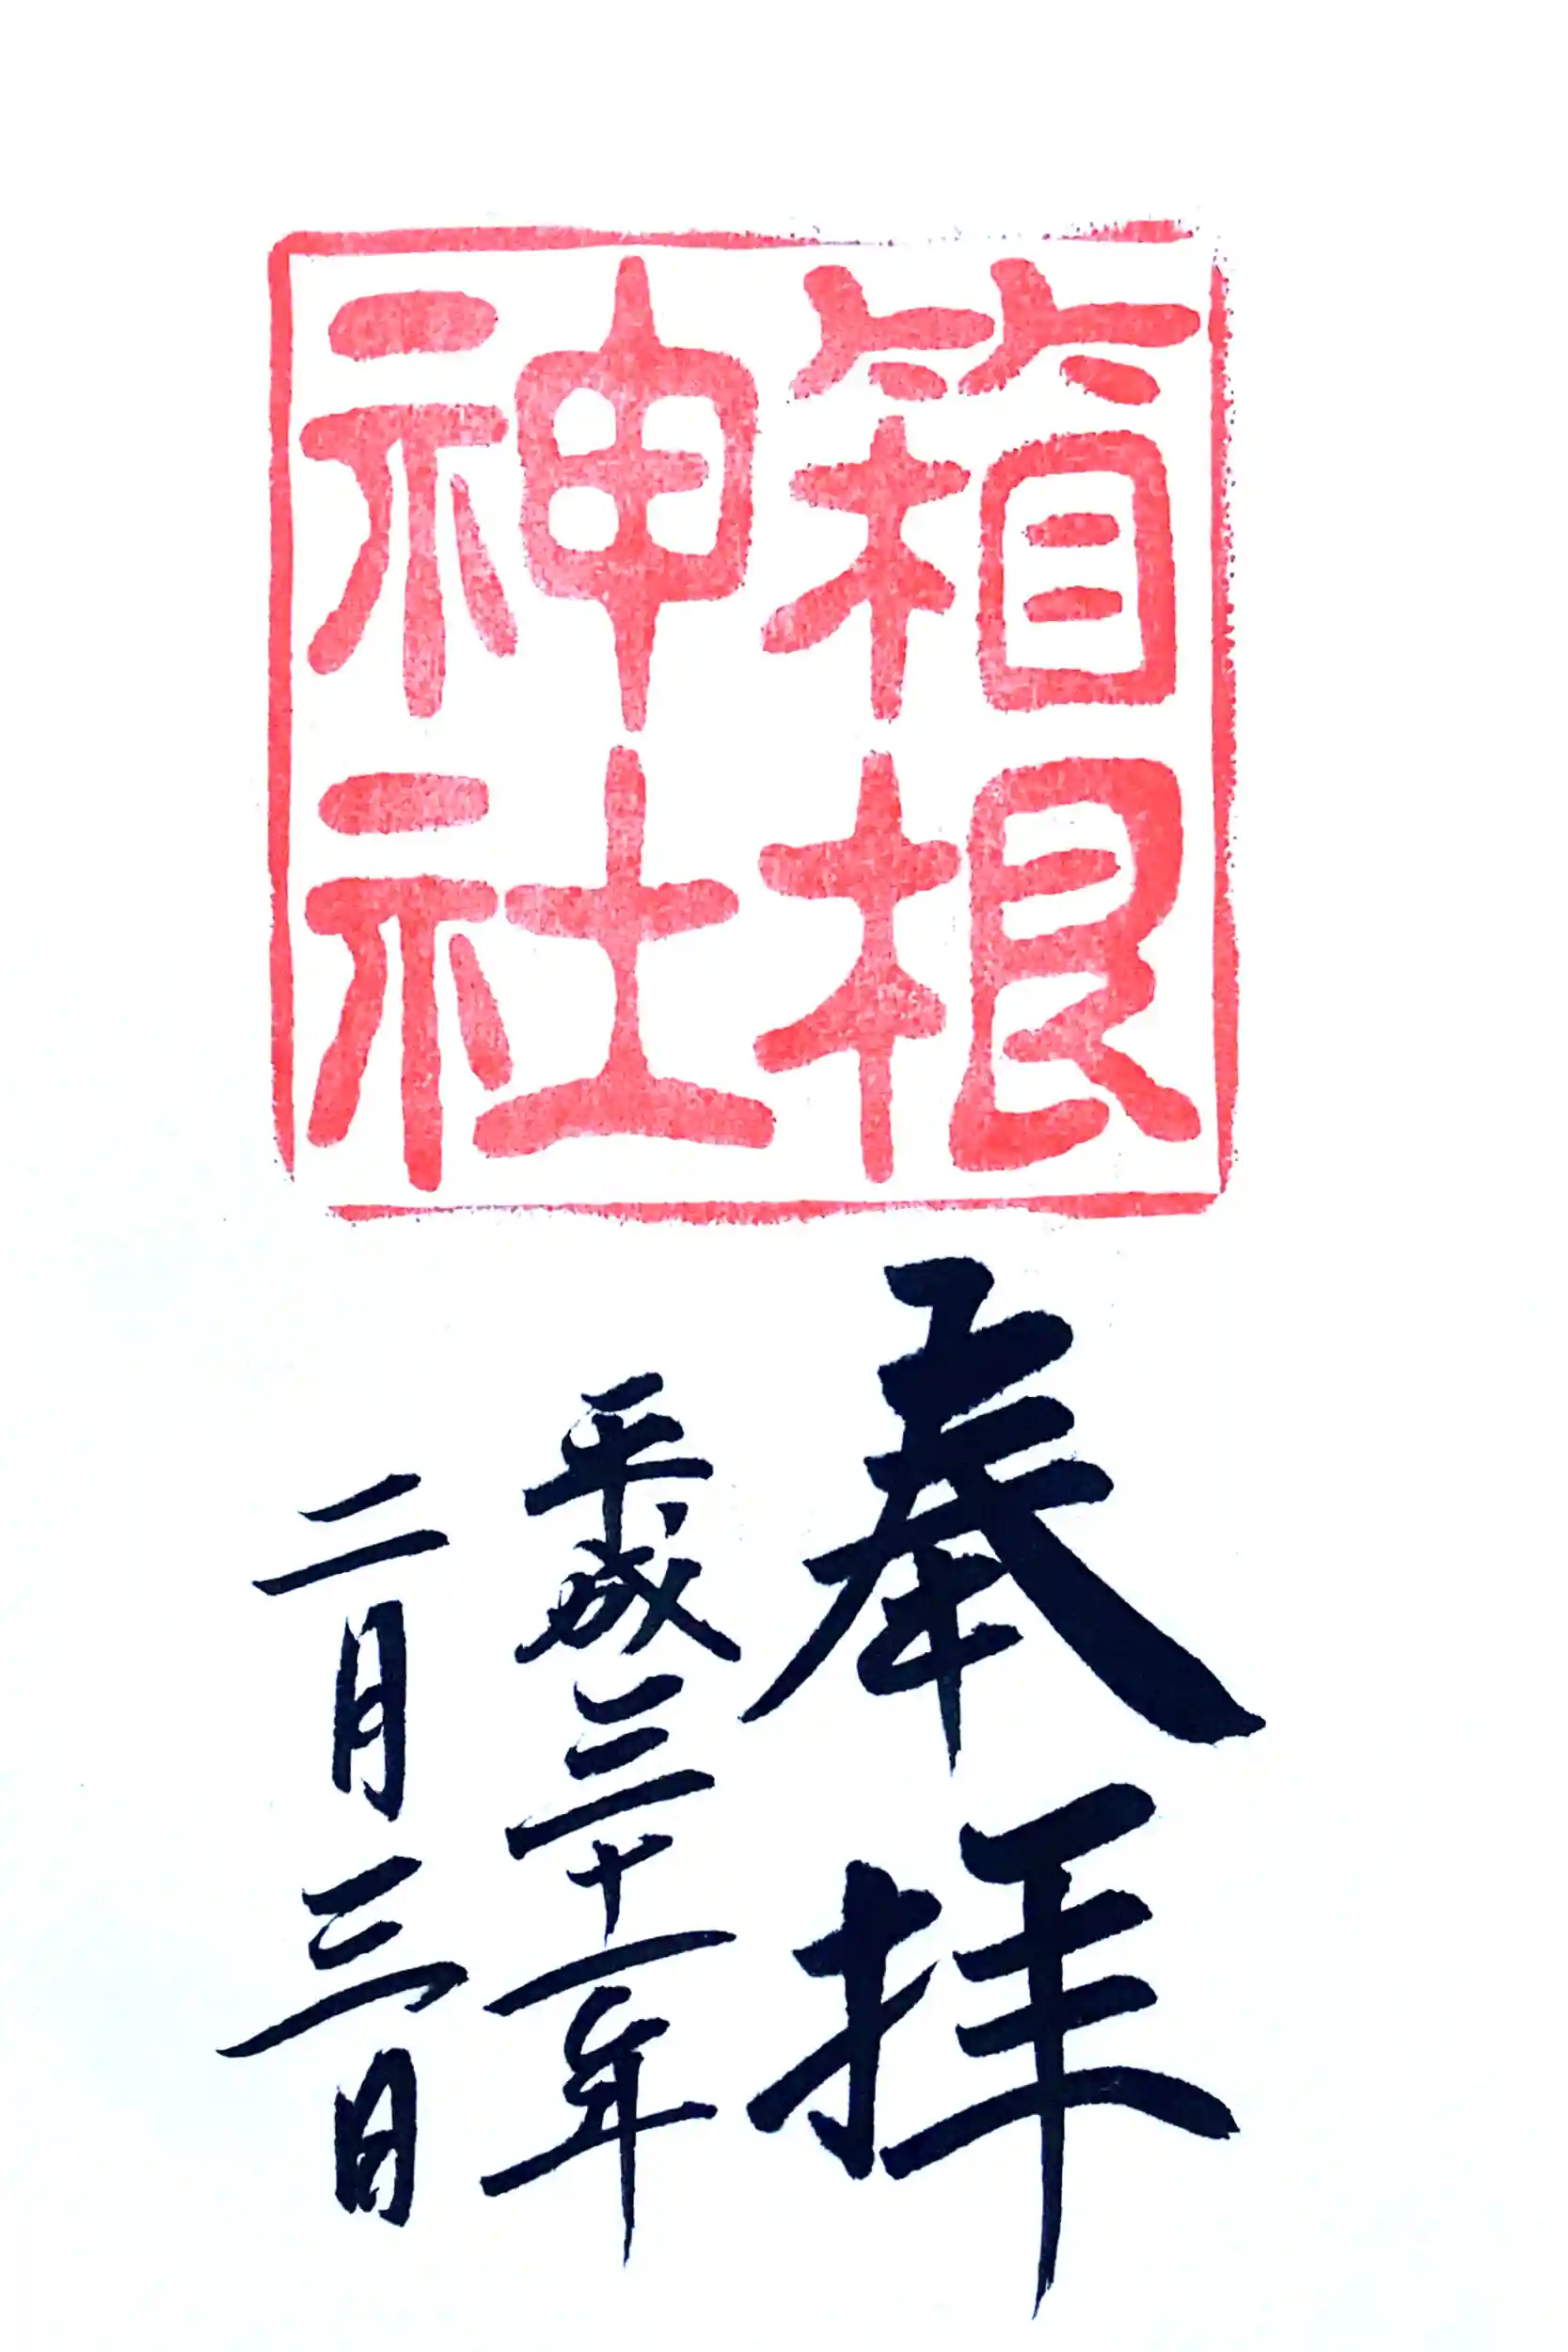 箱根
神社
奉拝
平成三十一年
二月三日